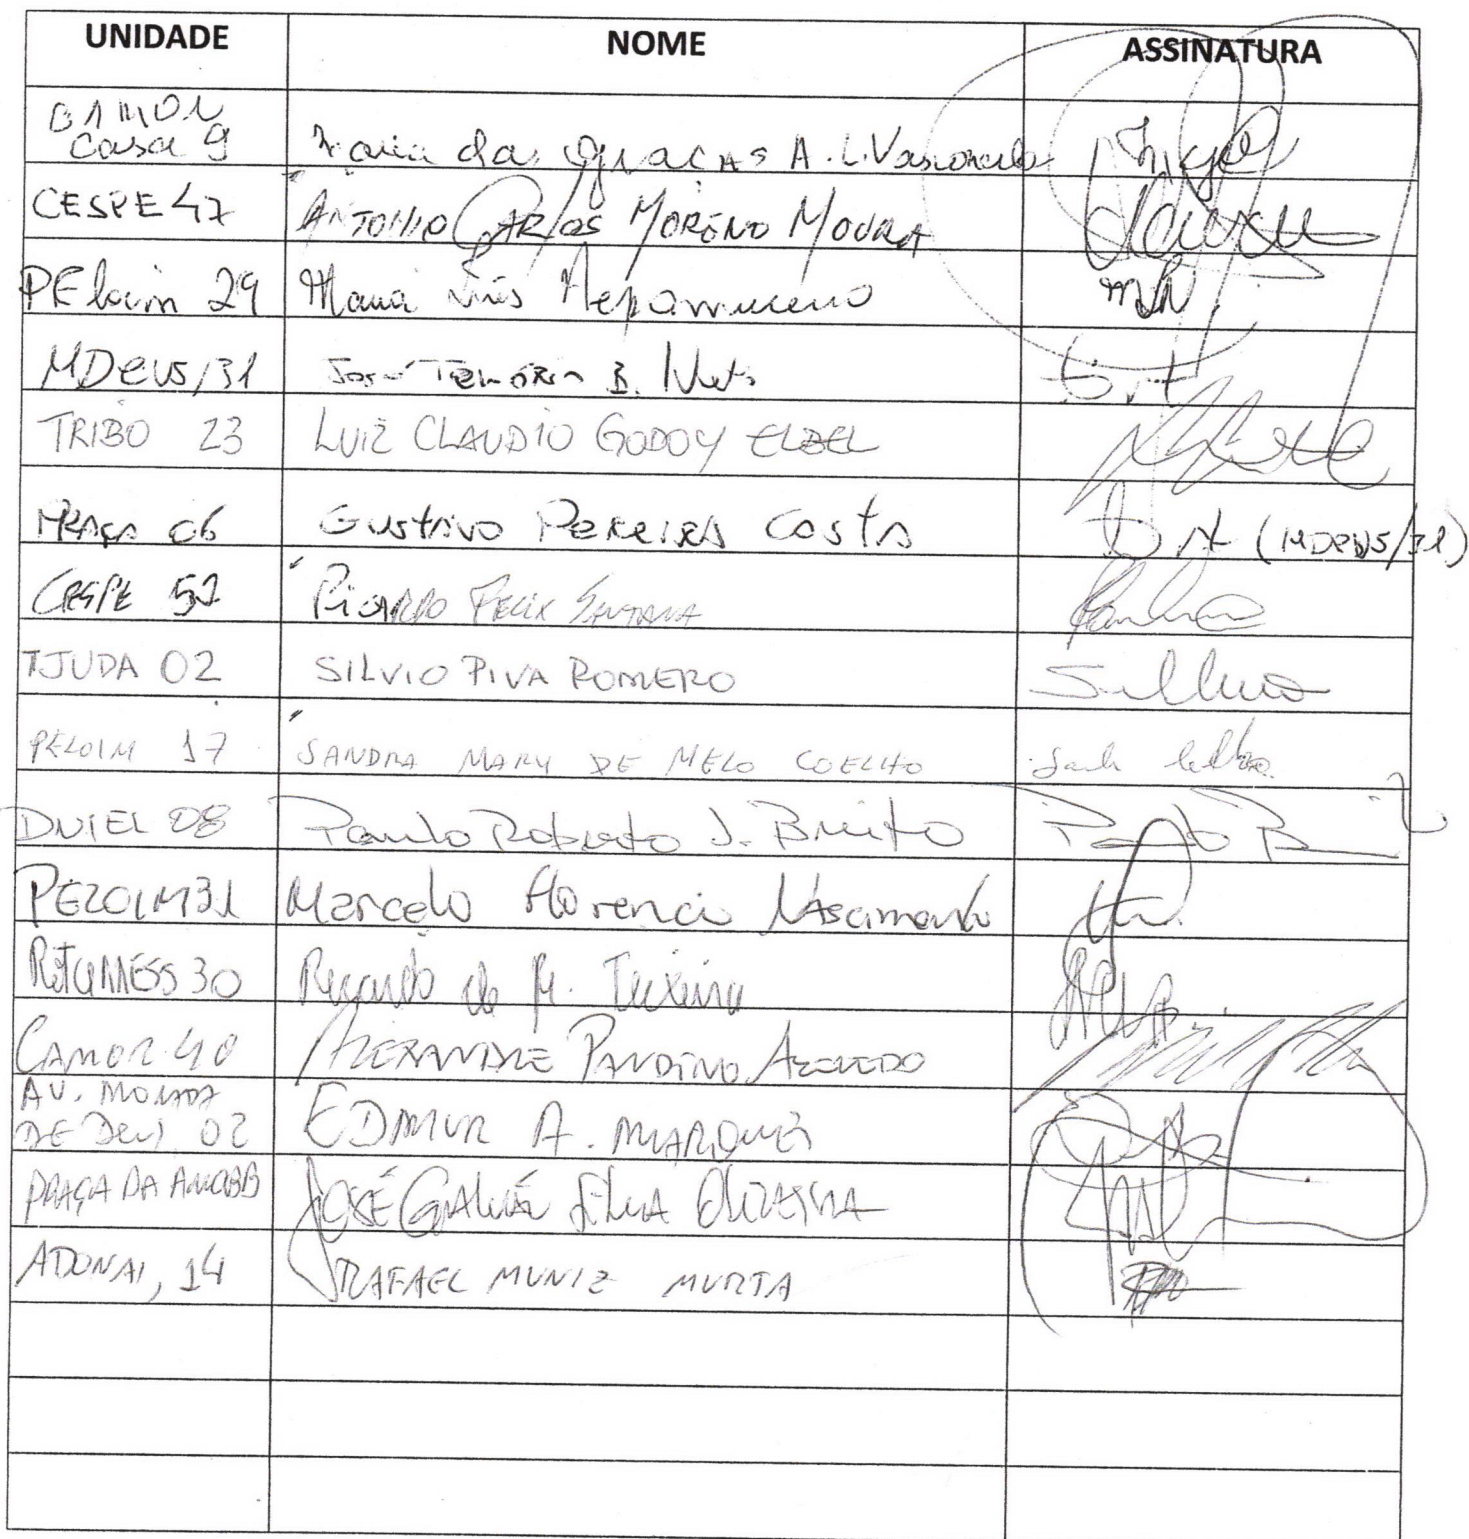 UNIDADE NOME ASSINATURA
Casa 9 Maria das Graças A. L. Vasconcelos
CESPE 47 ANTONIO CARLOS MORENO MOURA
PEloim 29 Maria Inês Nepomuceno
MDeus/31 José Tenório B. Neto
TRIBO 23 LUIZ CLAUDIO GODOY
PRAÇA 06 GUSTAVO PEREIRA COSTA (MDEUS/31)
CESPE 52 RICARDO FELIX SANTANA
TJUDA 02 SILVIO PIVA ROMERO
PELOIM 17 SANDRA MARY DE MELO COELHO
DNIEL 08 Paulo Roberto J. Brito
PELOIM 31 Marcelo Florencio Nascimento
30 Ricardo de M. Teixeira
CAMOR 40 ALEXANDRE PANDINO AZEVEDO
AV. MORADA
DE DEUS 02 EDMUR A. MARQUES
PRAÇA DA AMOBB JOSÉ SILVA OLIVEIRA
ADONAI, 14 RAFAEL MUNIZ MURTA